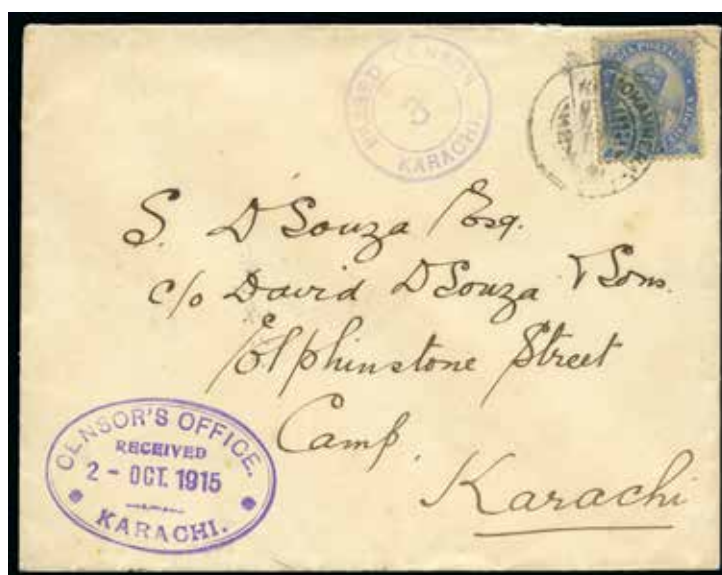 PASSED CENSOR
3
KARACHI
MOHAMMERAH
S. D'Souza Esq.
c/o David D'Souza & Sons.
Elphinstone Street
Camp.
Karachi
CENSOR'S OFFICE.
RECEIVED
2 - OCT. 1915
KARACHI.